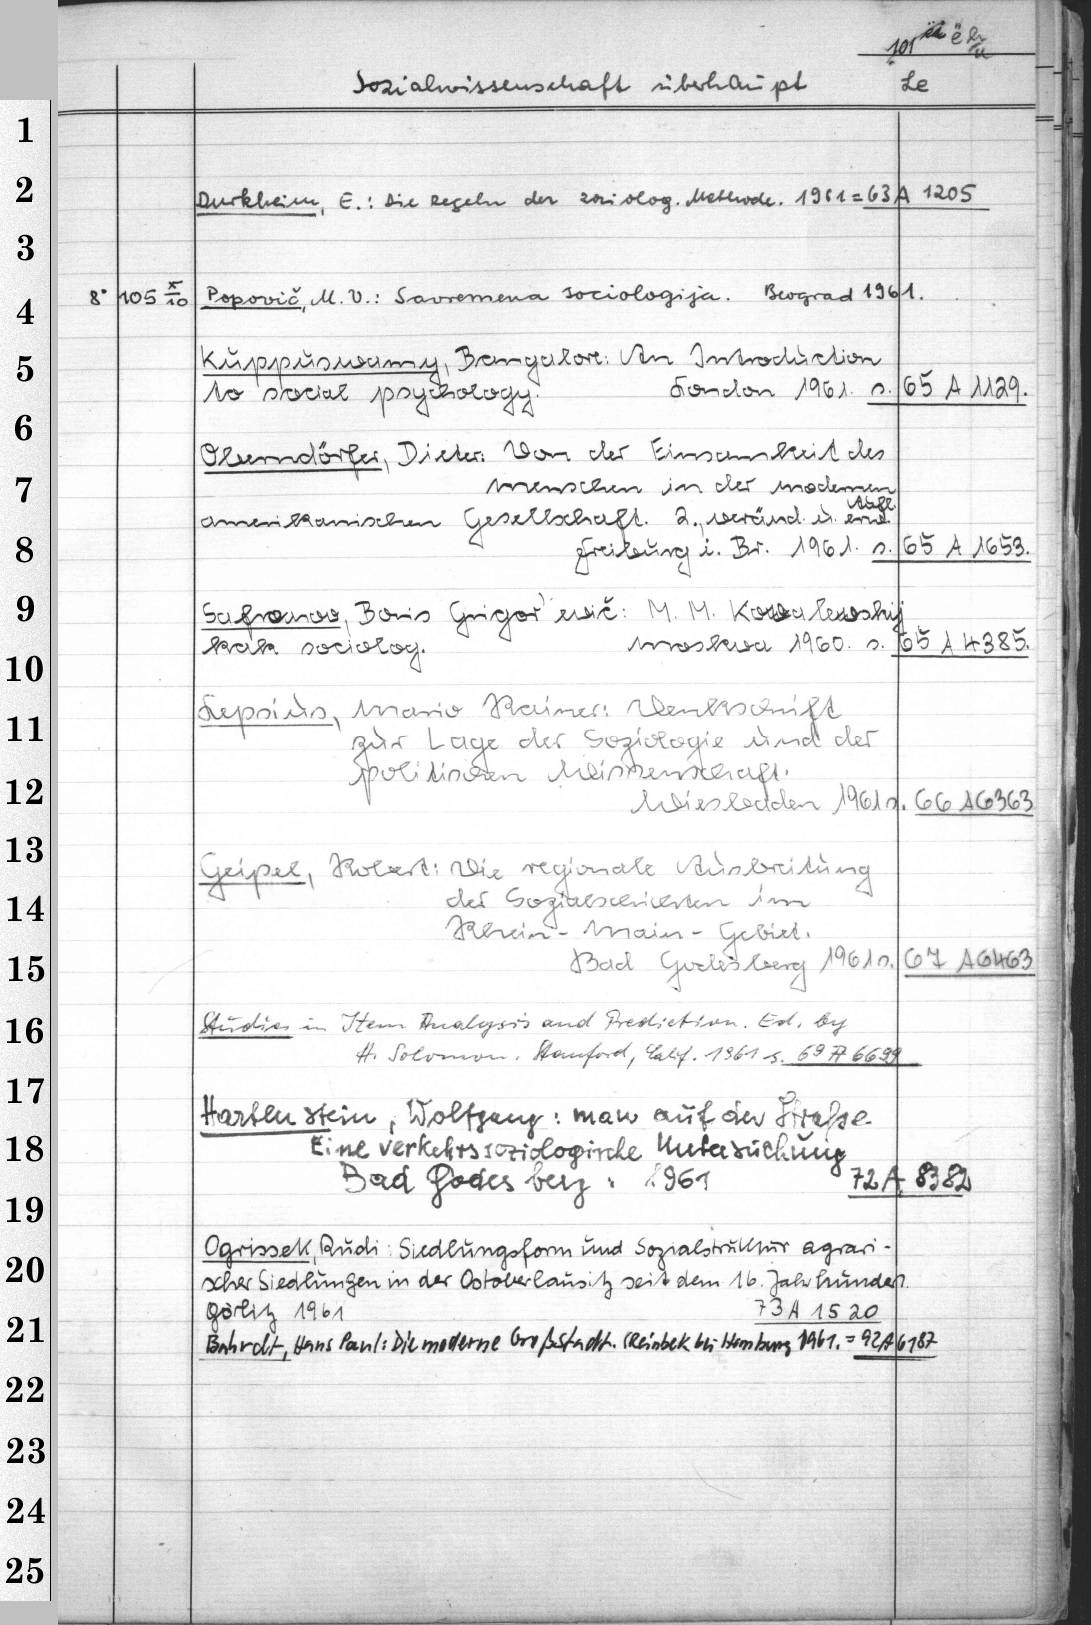 101
Sozialwissenschaft überhaupt Le
1
2 Durkheim, E.: Die Regeln der soziolog. Methode. 1961 = 63 A 1205
3
4 8° 105 x/10 Popovič, M. V.: Savremena sociologija. Beograd 1961.
5 Kuppuswamy, Bangalore: An Introduction
to social psychology. London 1961. s. 65 A 1129.
6
Oberndörfer, Dieter: Von der Einsamkeit des
7 Menschen in der modernen
amerikanischen Gesellschaft. 2., veränd. u. Aufl.
8 Freiburg i. Br. 1961. s. 65 A 1653.
9 Safronov, Boris Grigor'evič: M. M. Kovalevskij
kak sociolog. Moskva 1960. s. 65 A 4385.
10
11 Lepsius, Mario Rainer: Denkschrift
zur Lage der Soziologie und der
politischen Wissenschaft.
12 Wiesbaden 1961 s. 66 A 6363
13
Geipel, Robert: Die regionale Ausbreitung
14 der Sozialschichten im
Rhein-Main-Gebiet.
15 Bad Godesberg 1961 s. 67 A 6463
16 Studies in Item Analysis and Prediction. Ed. by
H. Solomon. Stanford, Calif. 1961 s. 69 A 6699
17
Hartenstein, Wolfgang: man auf der Straße
18 Eine verkehrssoziologische Untersuchung
Bad Godesberg. 1961 72 A 8382
19
Ogrissek, Rudi: Siedlungsform und Sozialstruktur agrari-
20 scher Siedlungen in der Ostoberlausitz seit dem 16. Jahrhundert.
Görlitz 1961 73 A 1520
21 Bahrdt, Hans Paul: Die moderne Großstadt. (Reinbek bei Hamburg 1961. = 92 A 6187
22
23
24
25